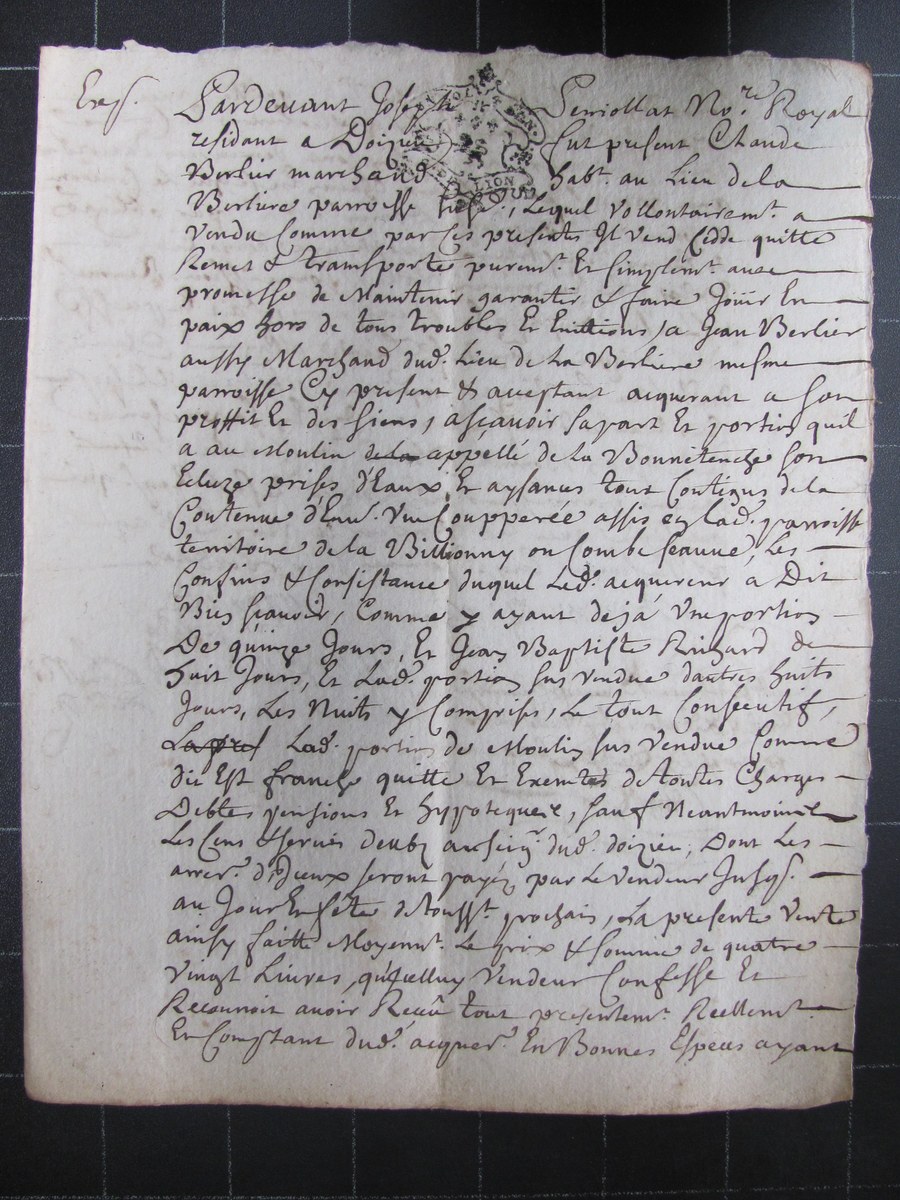 Exp.
Pardevant Joseph Perriollat No.re Royal
residant a Doizieu fut present Claude
Berlier marchand habt. au Lieu de la
Berliere parroisse susd., Lequel vollontairemt. a
vendu Comme par Ces presentes Il vend Cedde quitte
Remet & transporte puremt. Et simplemt. avec
promesse de Maintenir garantir & faire Joüir En
paix hors de tous troubles Et Evittions, a Jean Berlier
aussy Marchand dud. Lieu de La Berliere mesme
parroisse Cy present & acceptant acquerant a son
proffit Et des siens, asçavoir sa part Et portion quil
a au Moulin de la appellé de la Bonnetenche son
Ecluze prises d'Eaux, Et aysances tout Contigus de la
Contenue d'Envn. une Coupperée assis en lad. parroisse
territoire de la Billionny ou Combe , Les
Confins & Consistance duquel Led. acquereur à Dit
Bien sçavoir, Comme y ayant deja une portion
De quinze Jours, Et Jean Baptiste Richard de
huit Jours, Et Lad. portion sus vendue d'autres huits
Jours, Les Nuits y Comprises, Le tout Consecutif,
Lad. portion de Moulin sus vendue Comme
dit Est franche quitte Et Exemte de toutes Charges
Debtes pensions Et hypoteques, sauf Neantmoins
Les Cens & servis deubz au seigr. dud. doizieu, Dont Les
arrer. d'Iceux seront payéz par Le vendeur Jusqs.
au Jour Et fête de Toussts. prochain, La presente vente
ainsy faitte Moyennt. Le prix & somme de quatre
vingt Livres, qu'Icelluy vendeur Confesse Et
Reconnoit avoir Receu tout presentemt. Reellemt.
Et Comptant dud. acquer. En Bonnes Especes ayant
LION